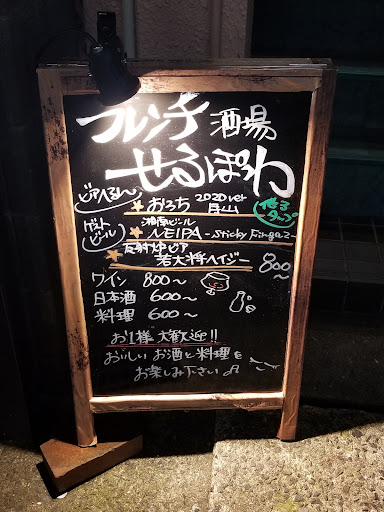 フレンチ 酒場
せるぽわ
ビアへるん
★おろち 2020ver 月山
せるタップ
ゲストビール
★湘南ビール
NEIPA -Sticky Fingaz-
★反射炉ビア
若大将ヘイジー
800〜
ワイン 800〜
日本酒 600〜
料理 600〜
お1様 大歓迎!!
おいしい お酒と料理を
お楽しみ下さい♫